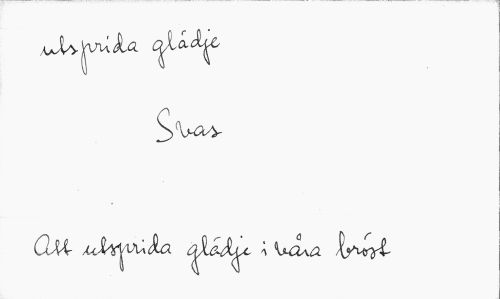 utsprida glädje
Svas
Att utsprida glädje i våra bröst